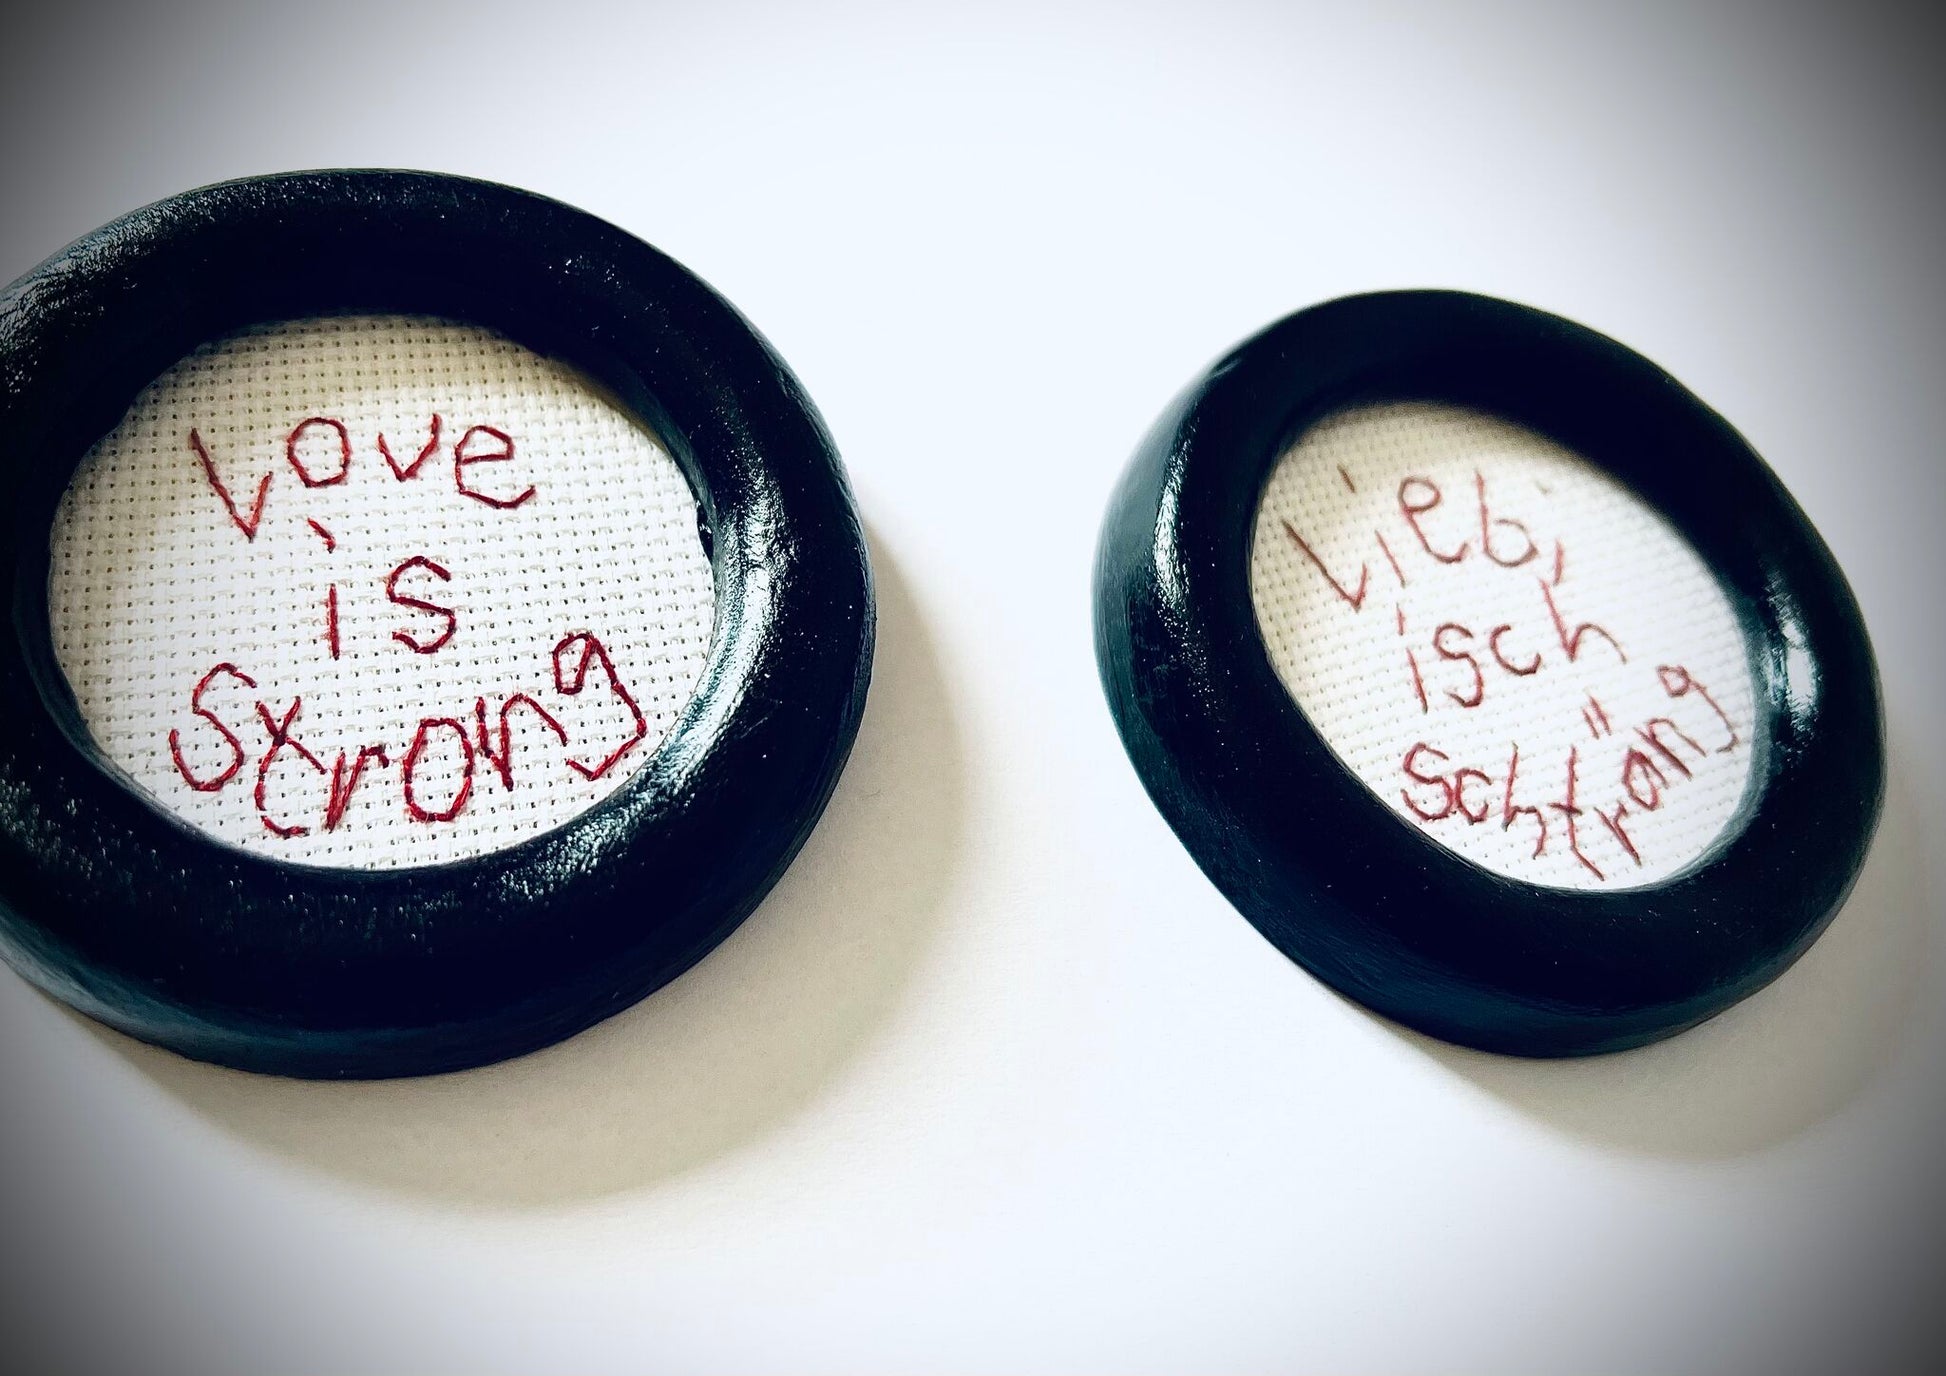 Love
is
strong
Liebi
isch
schträng